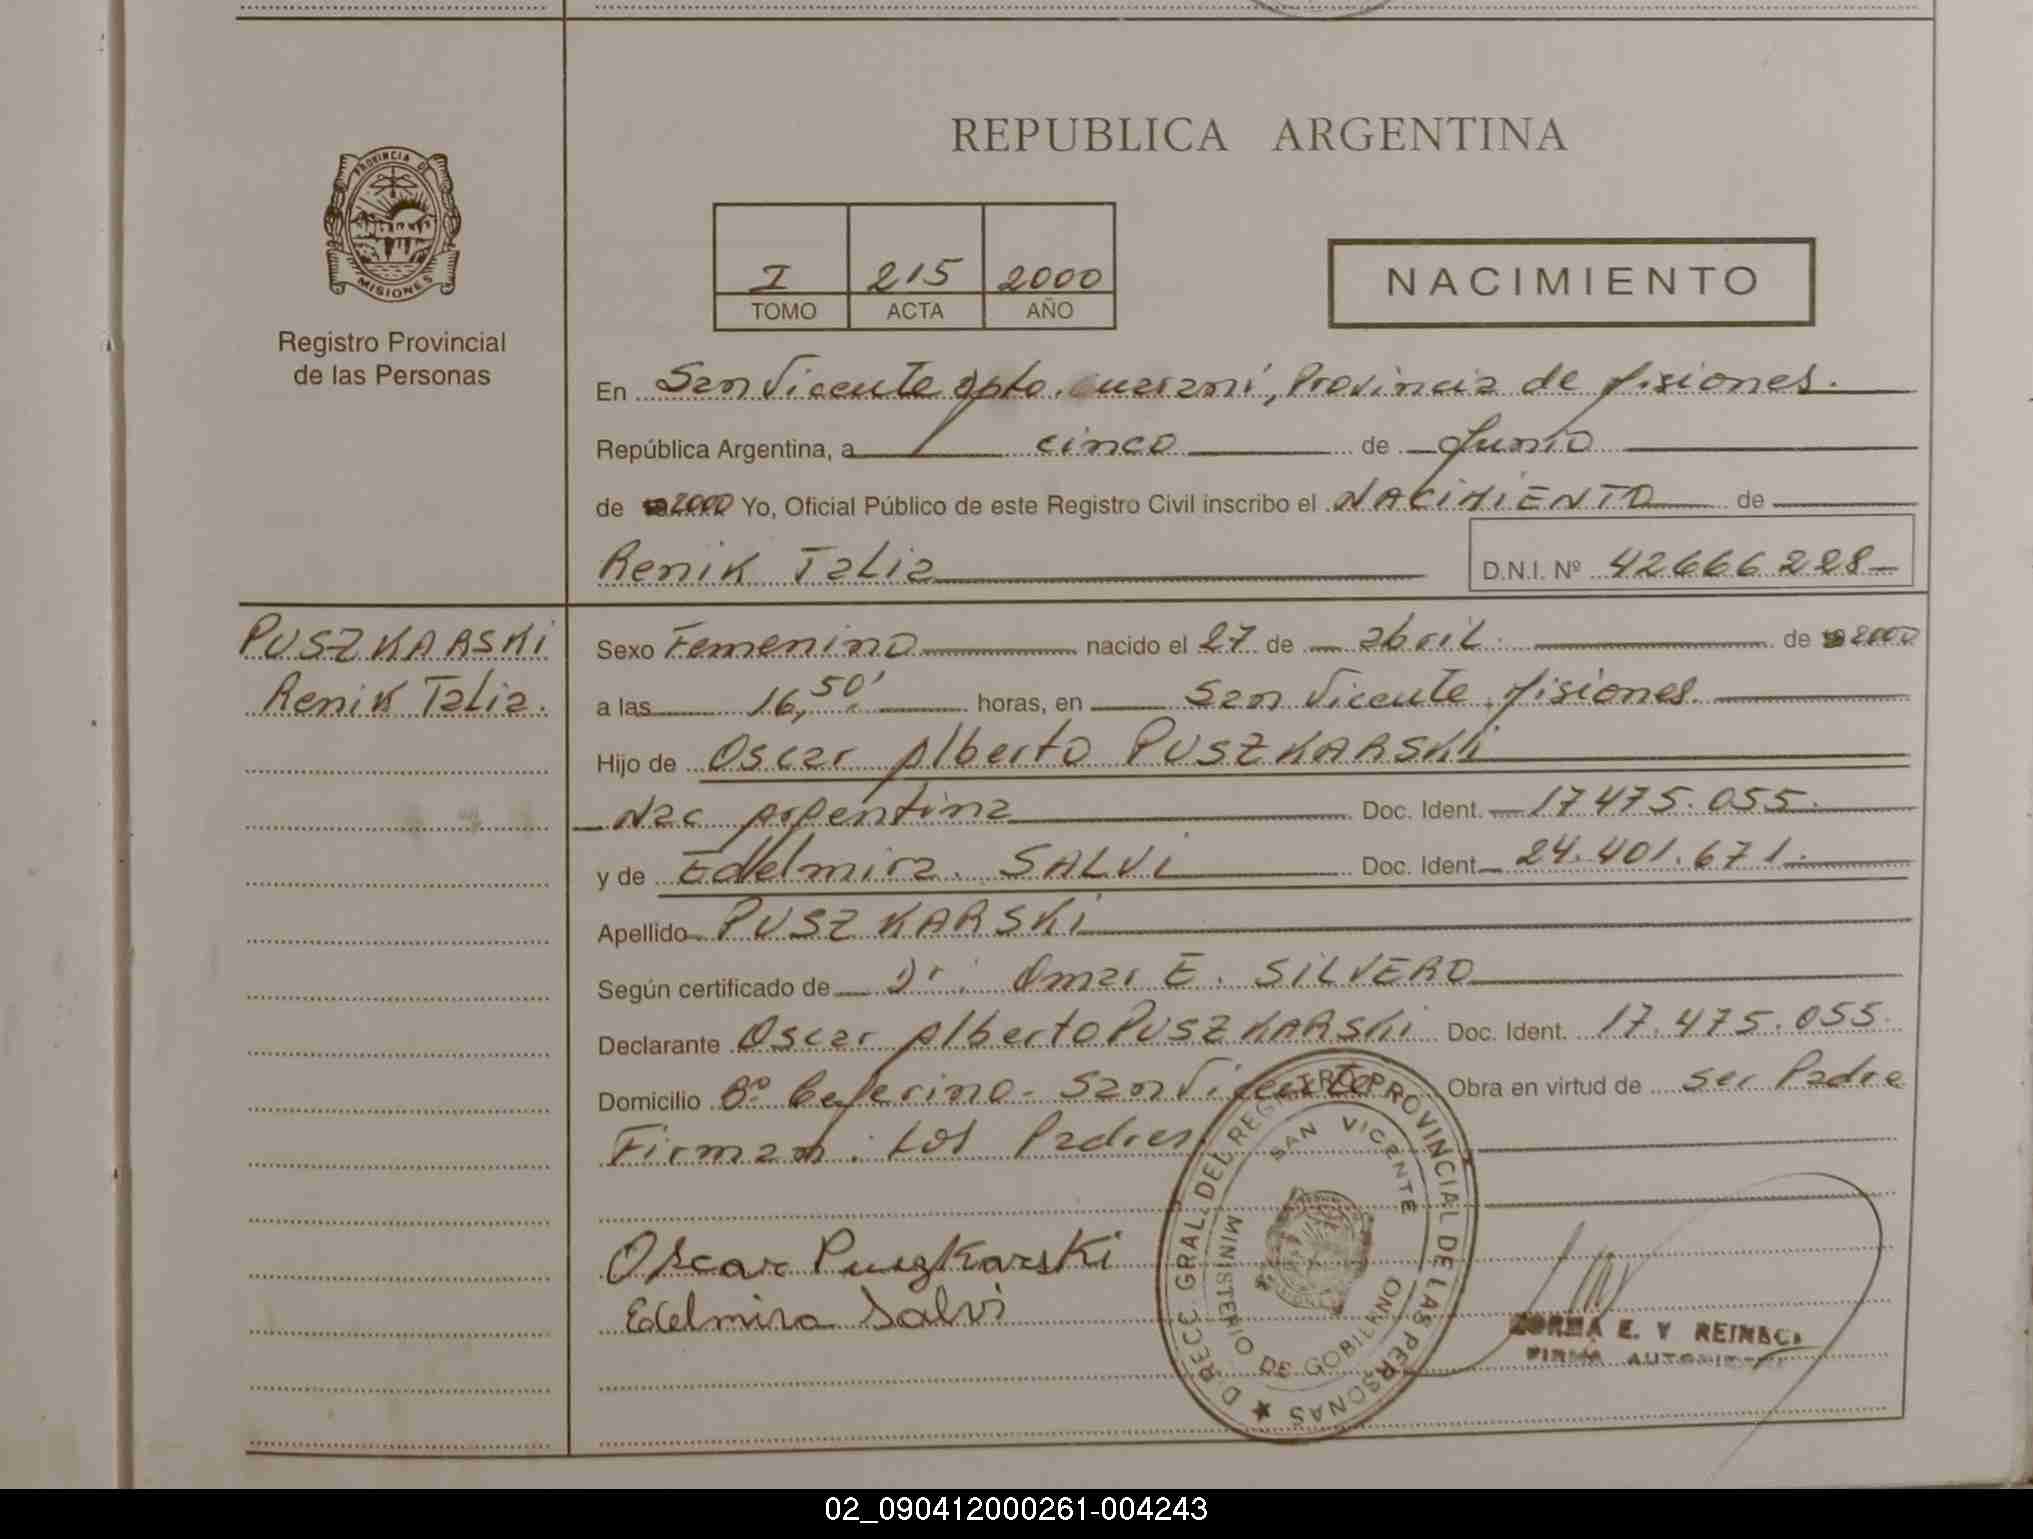 REPUBLICA ARGENTINA
PROVINCIA DE
MISIONES
Registro Provincial
de las Personas
I 215 2000
TOMO ACTA AÑO
NACIMIENTO
En San Vicente Dpto. Guaraní, Provincia de Misiones.
República Argentina, a cinco de Junio
de 2000 Yo, Oficial Público de este Registro Civil inscribo el NACIMIENTO de
Renik Talia D.N.I. Nº 42666228
PUSZKARSKI
Renik Talia.
Sexo Femenino nacido el 27 de abril. de 2000
a las 16,50' horas, en San Vicente, Misiones.
Hijo de Oscar Alberto PUSZKARSKi
Nac Argentina Doc. Ident. 17475.055.
y de Edelmira. SALVi Doc. Ident. 24.401.671.
Apellido PUSZKARSKi
Según certificado de Dr. Omar E. SiLVERO
Declarante Oscar Alberto PUSZKARSKi Doc. Ident. 17.475.055.
Domicilio Bº Ceferino - San Vicente Obra en virtud de ser Padre
Firman: Los Padres.
Oscar Puszkarski
Edelmira Salvi
DIRECC. GRAL. DEL REGISTRO PROVINCIAL DE LAS PERSONAS
SAN VICENTE
MINISTERIO DE GOBIERNO
E. V REINECI
FIRMA
02_090412000261-004243